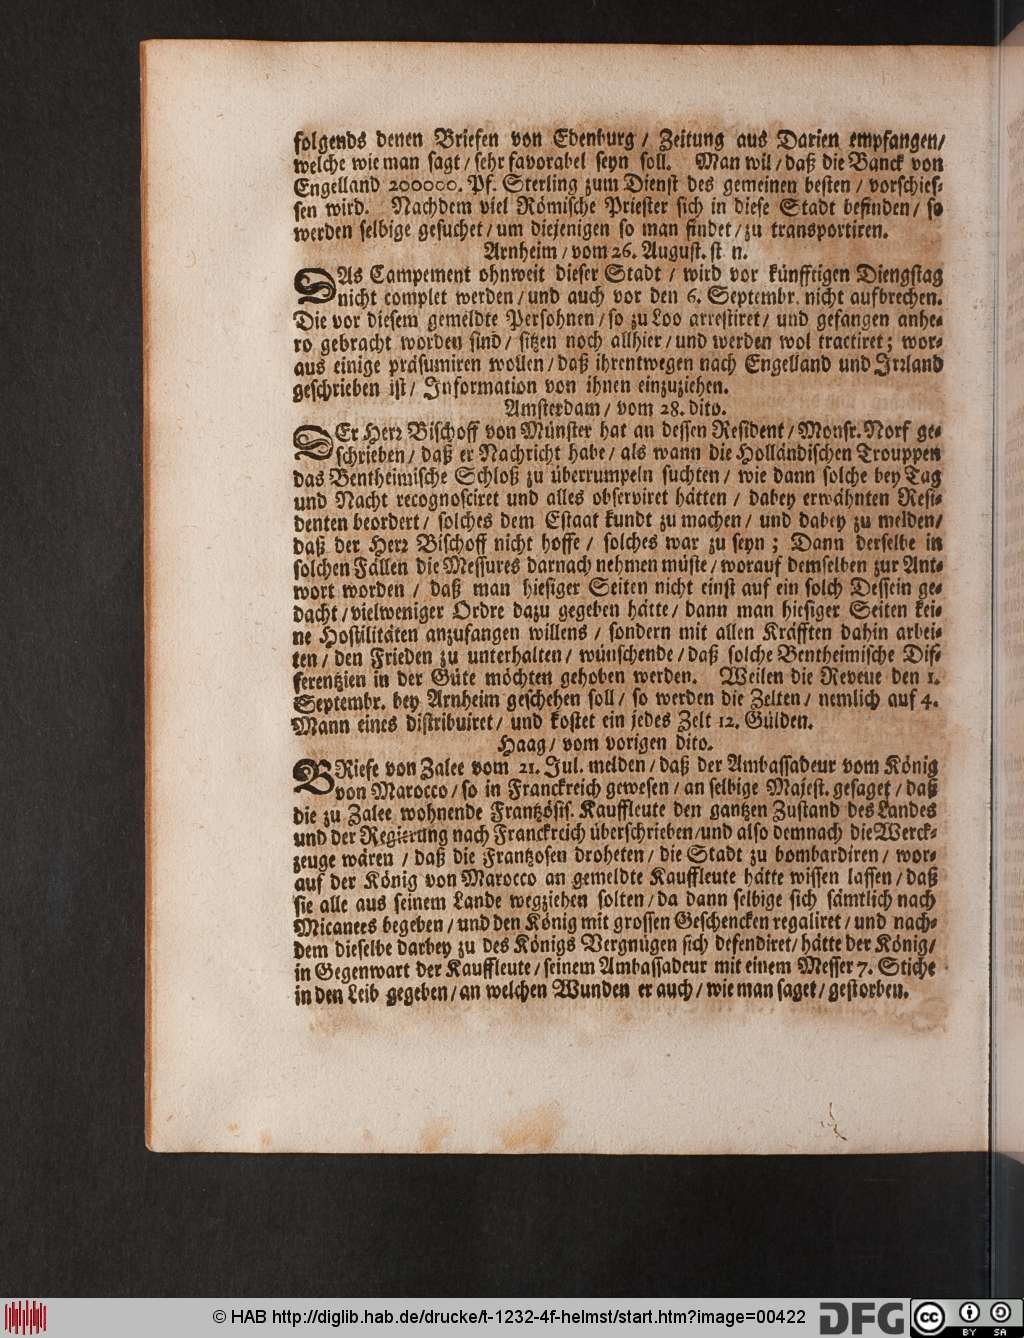 folgends denen Briefen von Edenburg / Zeitung aus Darien empfangen/
welche wie man sagt / sehr favorabel seyn soll. Man wil / daß die Banck von
Engelland 200000. Pf. Sterling zum Dienst des gemeinen besten / vorschies-
sen wird. Nachdem viel Römische Priester sich in diese Stadt befinden / so
werden selbige gesuchet / um diejenigen so man findet / zu transportiren.
Arnheim / vom 26. August. st. n.
DAs Campement ohnweit dieser Stadt / wird vor künfftigen Diengstag
nicht complet werden / und auch vor den 6. Septembr. nicht aufbrechen.
Die vor diesem gemeldte Persohnen / so zu Loo arrestiret / und gefangen anhe-
ro gebracht worden sind / sitzen noch allhier / und werden wol tractiret; wor-
aus einige präsumiren wollen / daß ihrentwegen nach Engelland und Irrland
geschrieben ist / Information von ihnen einzuziehen.
Amsterdam / vom 28. dito.
DEr Herr Bischoff von Münster hat an dessen Resident / Monsr. Norf ge-
schrieben / daß er Nachricht habe / als wann die Holländischen Trouppen
das Bentheimische Schloß zu überrumpeln suchten / wie dann solche bey Tag
und Nacht recognosciret und alles observiret hätten / dabey erwähnten Resi-
denten beordert / solches dem Estaat kundt zu machen / und dabey zu melden/
daß der Herr Bischoff nicht hoffe / solches war zu seyn ; Dann derselbe in
solchen Fällen die Messures darnach nehmen müste / worauf demselben zur Ant-
wort worden / daß man hiesiger Seiten nicht einst auf ein solch Dessein ge-
dacht / vielweniger Ordre dazu gegeben hätte / dann man hiesiger Seiten kei-
ne Hostilitäten anzufangen willens / sondern mit allen Kräfften dahin arbei-
ten / den Frieden zu unterhalten / wünschende / daß solche Bentheimische Dif-
ferentzien in der Güte möchten gehoben werden. Weilen die Reveue den 1.
Septembr. bey Arnheim geschehen soll / so werden die Zelten / nemlich auf 4.
Mann eines distribuiret / und kostet ein jedes Zelt 12. Gülden.
Haag / vom vorigen dito.
BRiefe von Zalee vom 21. Jul. melden / daß der Ambassadeur vom König
von Marocco / so in Franckreich gewesen / an selbige Majest. gesaget / daß
die zu Zalee wohnende Frantzösis. Kauffleute den gantzen Zustand des Landes
und der Regierung nach Franckreich überschrieben/und also demnach die Werck-
zeuge wären / daß die Frantzosen droheten / die Stadt zu bombardiren / wor-
auf der König von Marocco an gemeldte Kauffleute hätte wissen lassen / daß
sie alle aus seinem Lande wegziehen solten / da dann selbige sich sämtlich nach
Micanees begeben / und den König mit grossen Geschencken regaliret / und nach-
dem dieselbe darbey zu des Königs Vergnügen sich defendiret/ hätte der König/
in Gegenwart der Kauffleute / seinem Ambassadeur mit einem Messer 7. Stiche
in den Leib gegeben / an welchen Wunden er auch / wie man saget / gestorben.
© HAB http://diglib.hab.de/drucke/t-1232-4f-helmst/start.htm?image=00422
DFG
cc BY SA